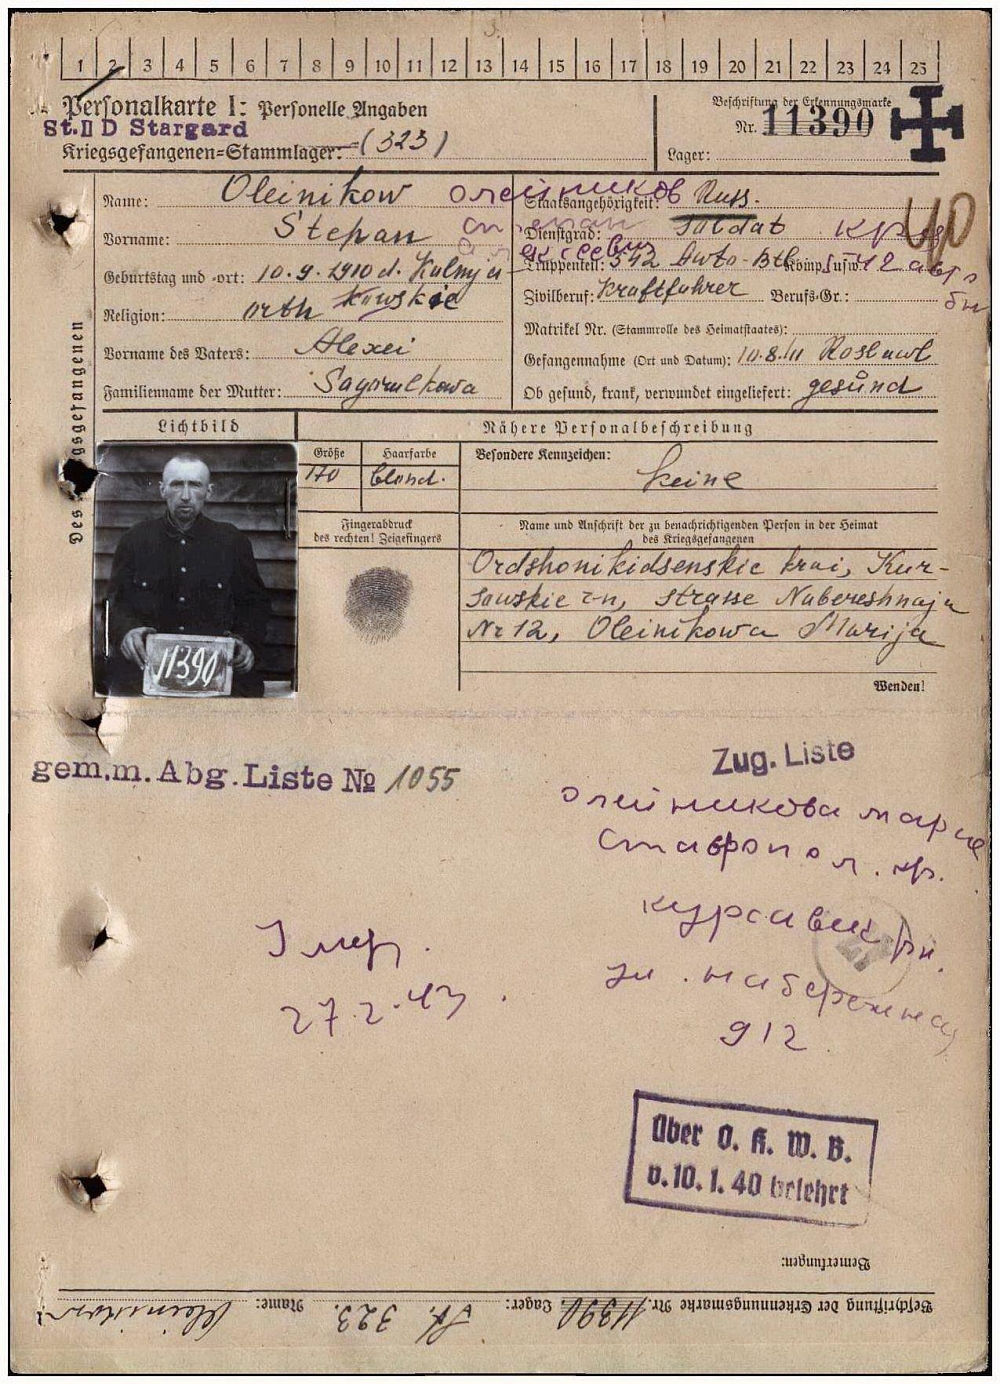 1 2 3 4 5 6 7 8 9 10 11 12 13 14 15 16 17 18 19 20 21 22 23 24 25
Personalkarte I: Personelle Angaben
St. II D Stargard
Kriegsgefangenen-Stammlager: (323)
Beschriftung der Erkennungsmarke
Nr. 11390
Lager:
Des Kriegsgefangenen
Name: Oleinikow Олейников
Vorname: Stepan Степан
Geburtstag und -ort: 10.9.1910 d. Kalmja
Religion: orth
Vorname des Vaters: Alexei
Familienname der Mutter:
Staatsangehörigkeit: Russ.
Dienstgrad: Soldat
40
Truppenteil: 542 Auto-Btl Komp. usw.:
Zivilberuf: Kraftfahrer Berufs-Gr.:
Matrikel Nr. (Stammrolle des Heimatstaates):
Gefangennahme (Ort und Datum): 10.8.41 Roslawl
Ob gesund, krank, verwundet eingeliefert: gesund
Lichtbild
11390
Nähere Personalbeschreibung
Größe
170
Haarfarbe
blond.
Besondere Kennzeichen:
keine
Fingerabdruck
des rechten! Zeigefingers
Name und Anschrift der zu benachrichtigenden Person in der Heimat
des Kriegsgefangenen
Ordshonikidsenskie krai, Kur-
sawskie r-n, Strasse Nabereshnaja
Nr 12, Oleinikowa Marija
Wenden!
gem. m. Abg. Liste № 1055
Zug. Liste
олейникова мария
ставропол. кр.
курсавск рн.
ул. набережная
д 12
Умер.
27.2.43
Über O.K.W.B.
v. 10. 1. 40 belehrt
Bemerkungen:
Beschriftung der Erkennungsmarke Nr. 11390 Lager: St. 323. Name: Oleinikow